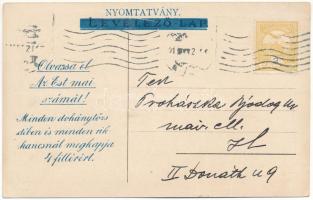 NYOMTATVÁNY.
LEVELEZŐ-LAP
Olvassa el
Az Est mai
számát!
Minden dohánytőzs
dében és minden rik
kancsnál megkapja
4 fillérért.
Tek
Prohászka
H
II Donáth u 9